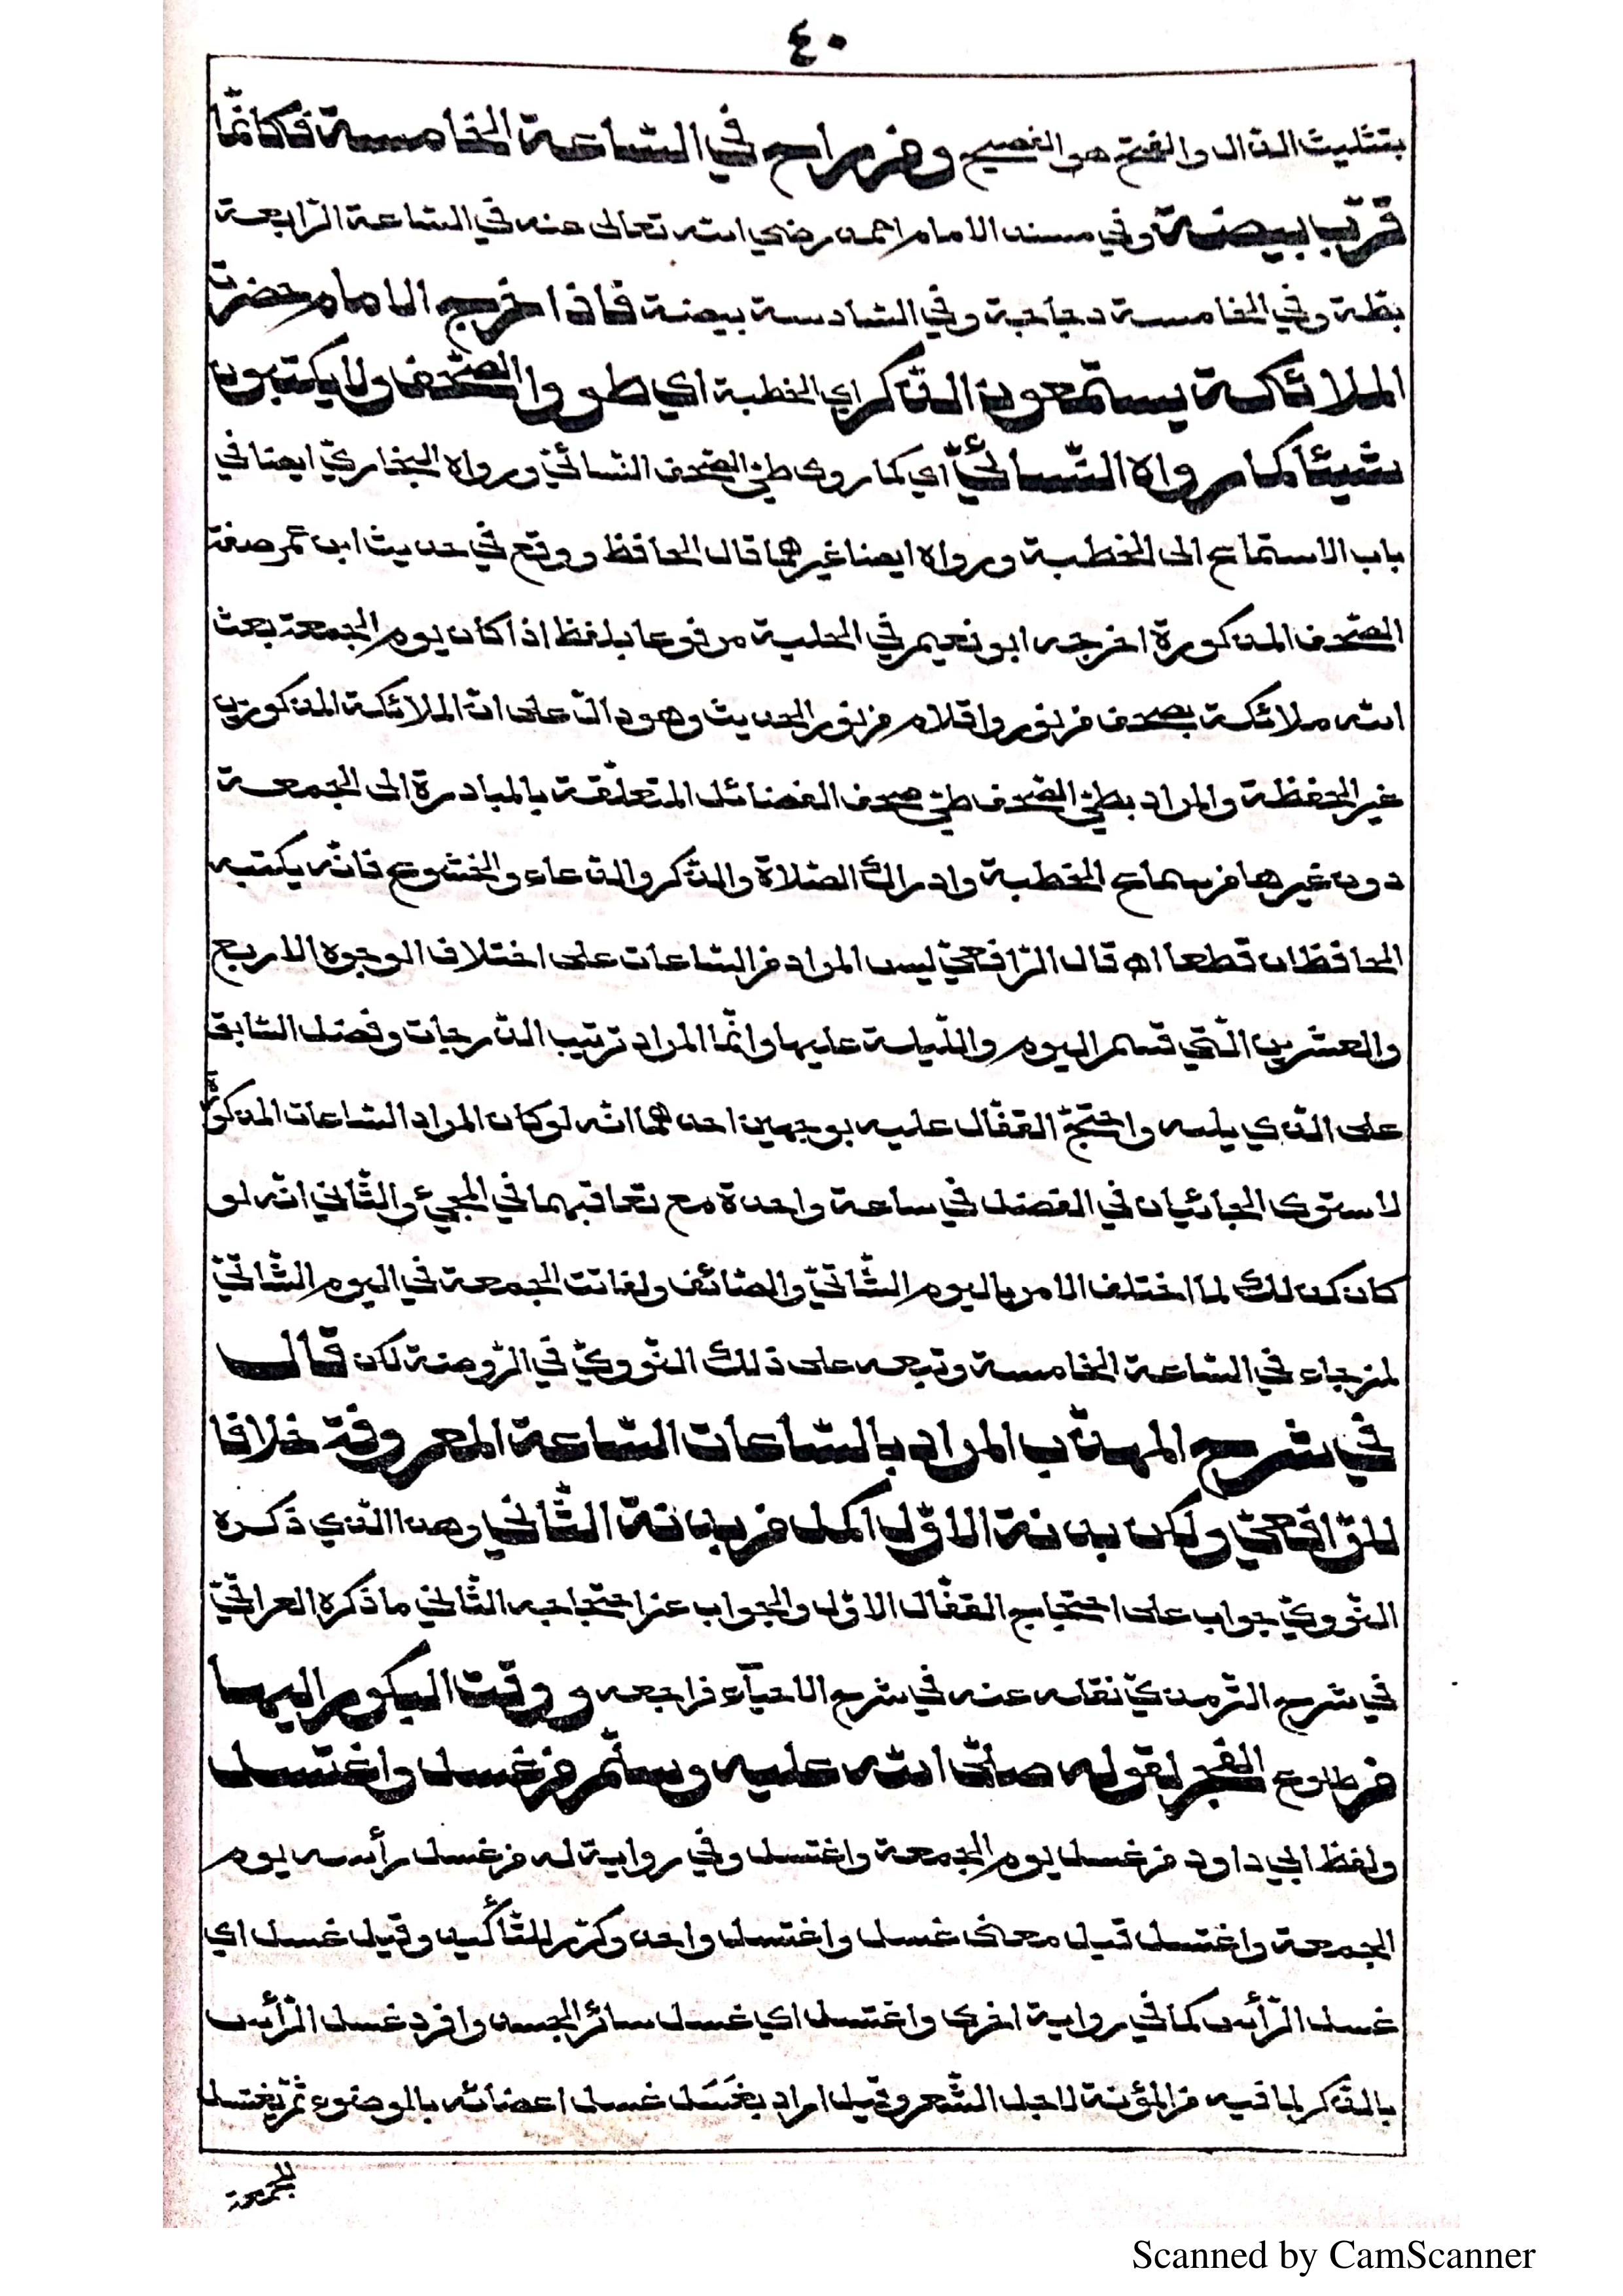 ٤٠
بتثليث الدّال والفتح هو الفصيح ومن راح في السّاعة الخامسة فكانّما
قرّب بيضة وفي مسند الامام احمد رضي الله تعالى عنه في السّاعة الرّابعة
بطّة وفي الخامسة دجاجة وفي السّادسة بيضة فاذا خرج الامام حضرت
الملائكة يستمعون الذّكر اي الخطبة اي طووا الصّحف ولا يكتبون
شيئا كما رواه النّسائيّ اي كما روى طيّ الصّحف النّسائيّ ورواه البخاريّ ايضا في
باب الاستماع الى الخطبة ورواه ايضا غيرهما قال الحافظ ووقع في حديث ابن عمر صفة
الصّحف المذكورة اخرجه ابو نعيم في الحلية مرفوعا بلفظ اذا كان يوم الجمعة بعث
الله ملائكة بصحف من نور واقلام من نور الحديث وهو دالّ على انّ الملائكة المذكورين
غير الحفظة والمراد بطيّ الصّحف طيّ صحف الفضائل المتعلّقة بالمبادرة الى الجمعة
دون غيرها من سماع الخطبة وادراك الصّلاة والذّكر والدّعاء والخشوع فانّه يكتبه
الحافظان قطعا اه قال الرّافعيّ ليس المراد من السّاعات على اختلاف الوجوه الاربع
والعشرين الّتي قسم اليوم واللّيلة عليها وانّما المراد ترتيب الدّرجات وفضل السّابق
على الّذي يليه واحتجّ القفّال عليه بوجهين احدهما انّه لو كان المراد السّاعات المذكورة
لاستوى الجائيان في الفضل في ساعة واحدة مع تعاقبهما في المجيئ والثّاني انّه لو
كان كذلك لما اختلف الامر باليوم الشّاتيّ والصّائف ولفاتت الجمعة في اليوم الشّاتيّ
لمن جاء في السّاعة الخامسة وتبعه على ذلك النّوويّ في الرّوضة لكن قال
في شرح المهذّب المراد بالسّاعات السّاعة المعروفة خلافا
للرّافعيّ ولكن بدنة الاوّل اكمل من بدنة الثّاني وهذا الّذي ذكره
النّوويّ جواب على احتجاج القفّال الاوّل والجواب عن احتجاجه الثّاني ما ذكره العراقيّ
في شرح التّرمذي نقله عنه في شرح الاحيآء فراجعه ووقت البكور اليها
من طلوع الفجر لقوله صلّى الله عليه وسلّم من غسل واغتسل
ولفظ ابي داود من غسل يوم الجمعة واغتسل وفي رواية له من غسل رأسه يوم
الجمعة واغتسل قيل معنى غسل واغتسل واحد وكرّر للتّأكيد وقيل غسل اي
غسل الرّأس كما في رواية اخرى واغتسل اي غسل سائر الجسد وافرد غسل الرّأس
بالذّكر لما فيه من المؤنة لاجل الشّعر وقيل اراد بغَسَل غسل اعضائه بالوضوء ثمّ يغتسل
للجمعة
Scanned by CamScanner